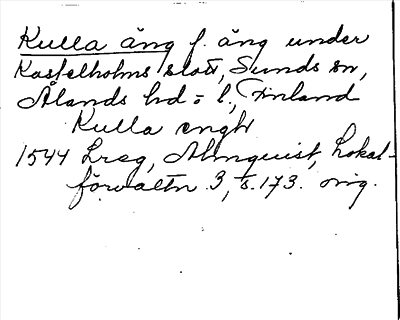 Kulla äng f. äng under
Kastelholms slott, Sunds sn,
Ålands hd o l., Finland
Kulla engh
1544 Lreg, Almquist, Lokal-
förvaltn 3, s. 173. orig.